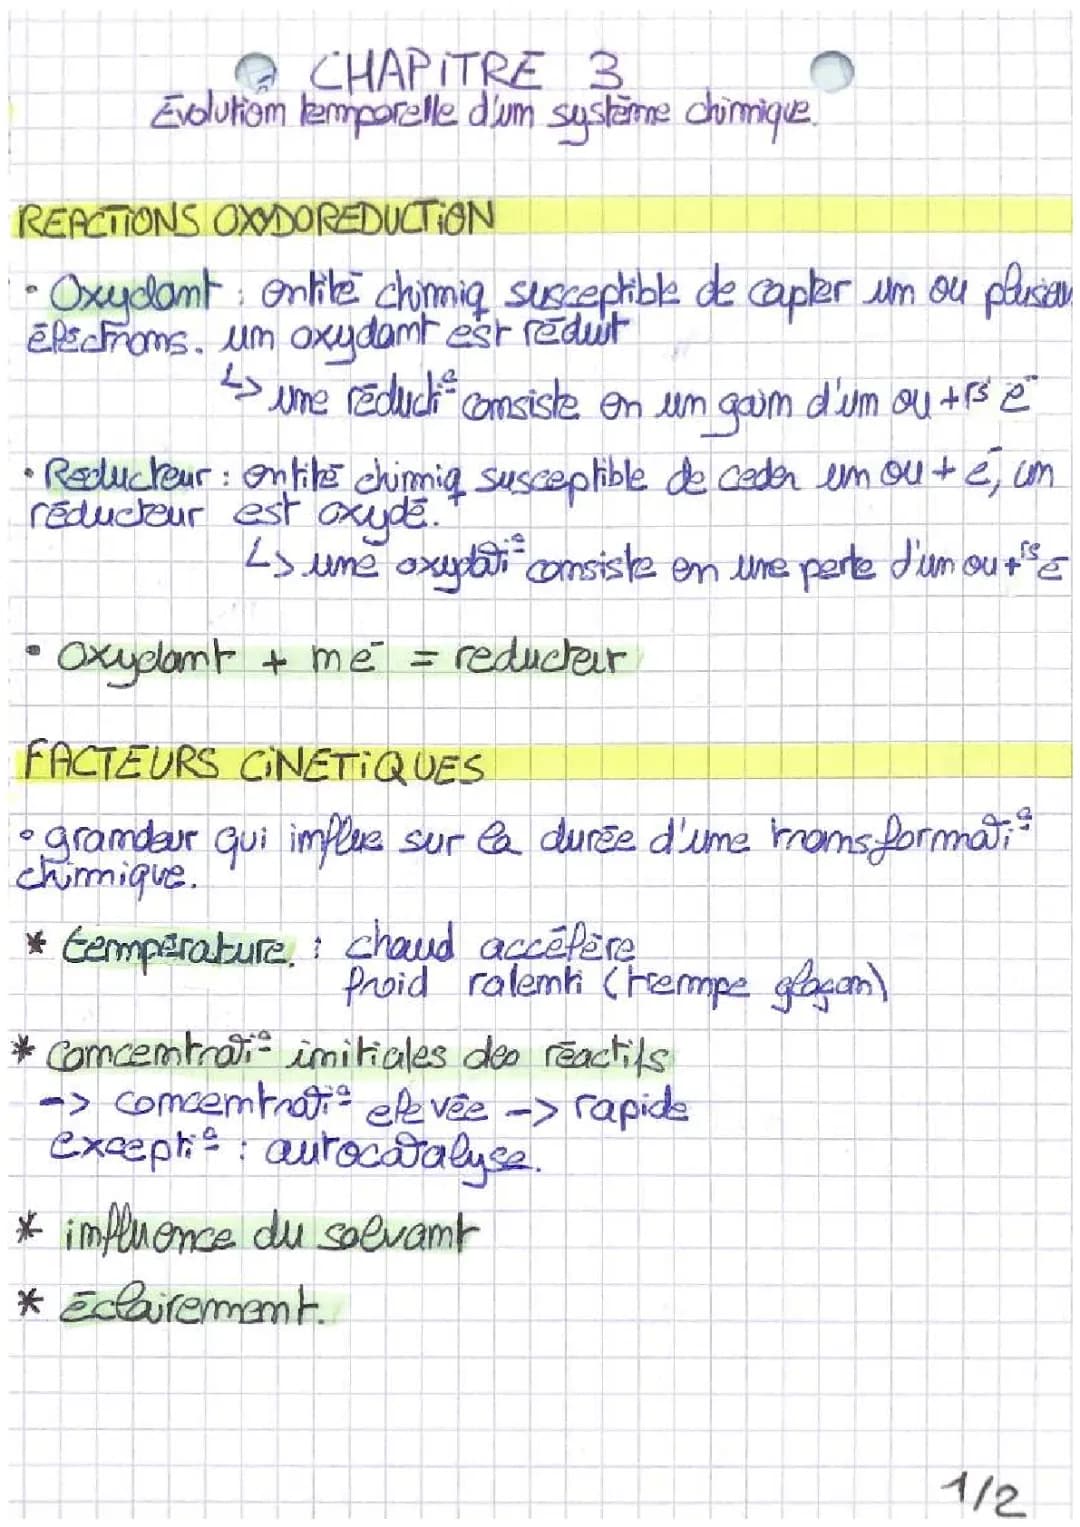 CHAPITRE 3
Évolution temporelle d'un système chimique.
REACTIONS OXYDOREDUCTION
• Oxydant : entité chimiq susceptible de capter un ou plusieu
électrons. un oxydant est réduit
↳ une réducti° consiste en un gain d'un ou +rs e⁻
• Reducteur : entité chimiq susceptible de ceder un ou + e⁻, un
réducteur est oxydé.
↳ une oxydati° consiste en une perte d'un ou +rs e⁻
• Oxydant + ne⁻ = reducteur
FACTEURS CINETIQUES
• grandeur qui influe sur la durée d'une transformati°
chimique.
* température : chaud accélère
froid ralenti (trempe glaçon)
* Concentrati° initiales des réactifs
-> concentrati° elevée -> rapide
excepti° : autocatalyse.
* influence du solvant
* Éclairement.
1/2